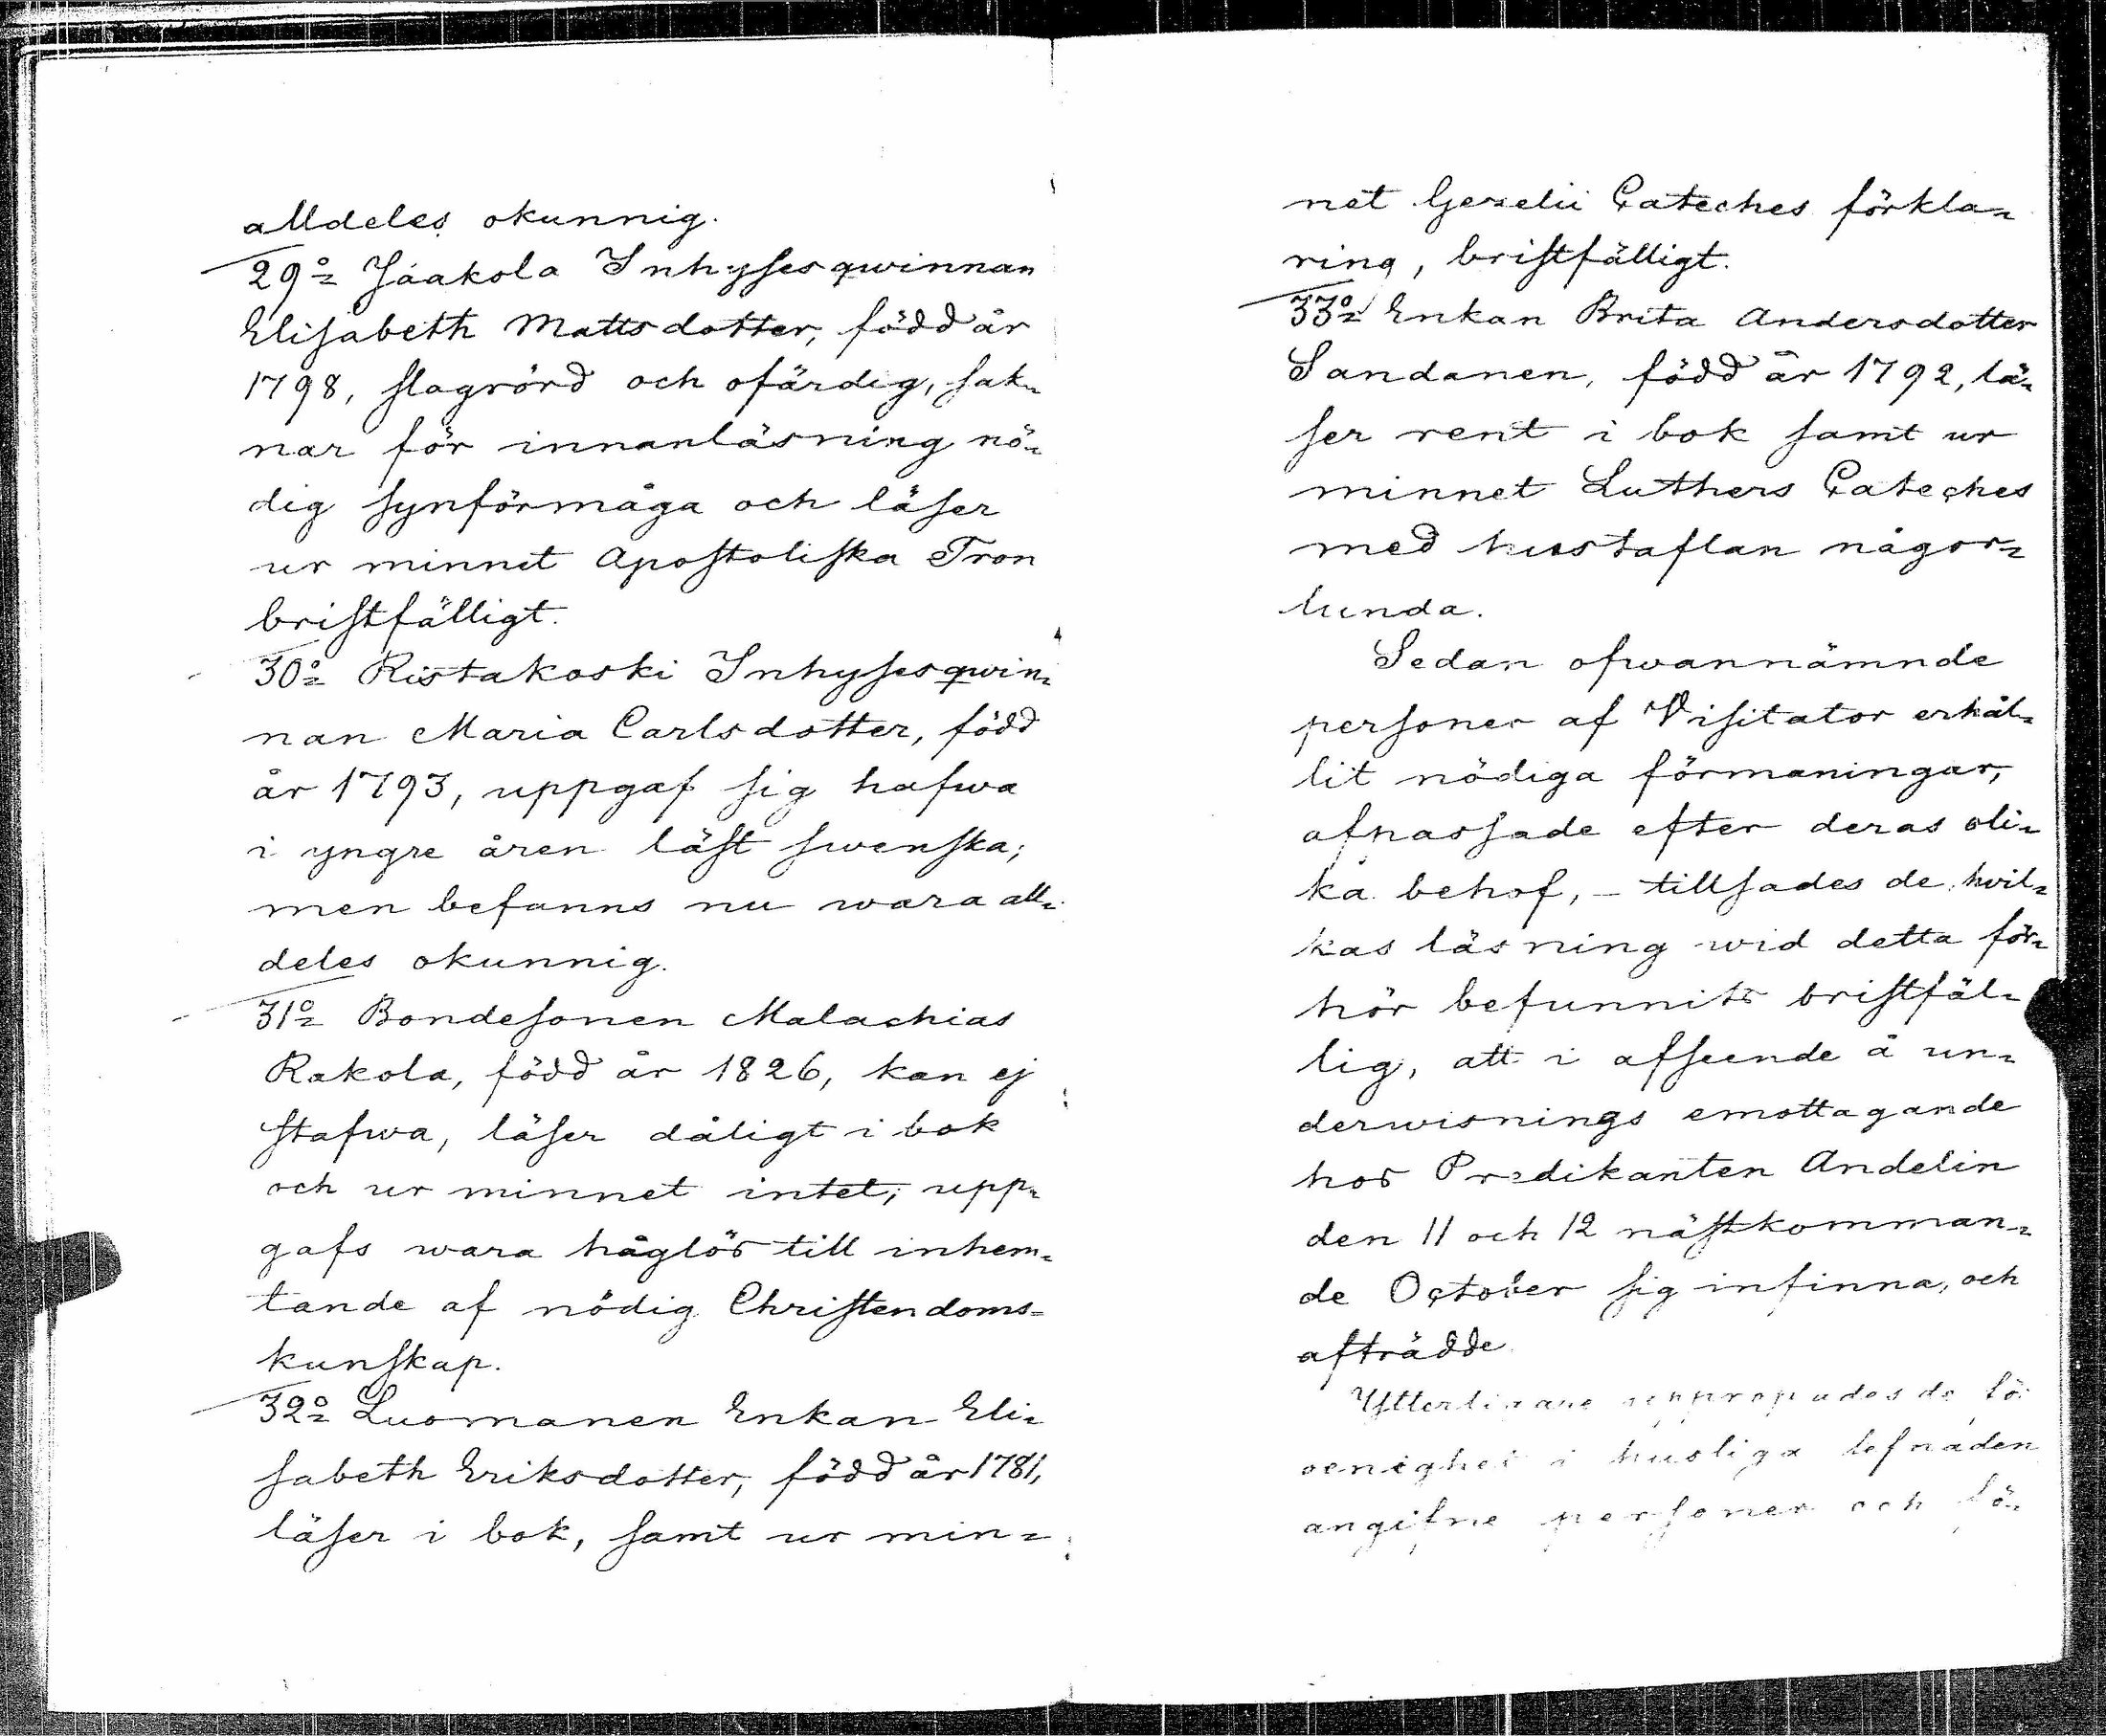 alldeles okunnig.
29o= Jaakola Inhysesqwinnan
Elisabeth Mattsdotter, född år
1798, slagrörd och ofärdig, sak=
nar för innanläsning nö=
dig synförmåga och läser
ur minnet Apostoliska Tron
bristfälligt.
30o= Ristakoski Inhysesqwin=
nan Maria Carlsdotter, född
år 1793, uppgaf sig hafwa
i yngre åren läst swenska;
men befanns nu wara all=
deles okunnig.
31o= Bondesonen Malachias
Rakola, född år 1826, kan ej
stafwa, läser dåligt i bok
och ur minnet intet; upp=
gafs wara håglös till inhem=
tande af nödig Christendoms=
kunskap.
32o= Luomanen Enkan Eli=
sabeth Eriksdotter, född år 1781,
läser i bok, samt ur min=
net Gezelii Cateches förkla=
ring, bristfälligt.
33o= Enkan Brita Andersdotter
Sandanen, född år 1792, lä=
ser rent i bok samt ur
minnet Luthers Cateches
med hustaflan någor=
lunda.
Sedan ofwannämnde
personer af Visitator erhål=
lit nödiga förmaningar,
afpassade efter deras oli=
ka behof, - tillsades de, hvil=
kas läsning wid detta för=
hör befunnits bristfäl=
lig, att i afseende å un=
derwisnings emottagande
hos Predikanten Andelin
den 11 och 12 nästkomman=
de October sig infinna, och
afträdde.
Ytterligare uppropades de för
oenighet i husliga lefnaden
angifne personer och för=